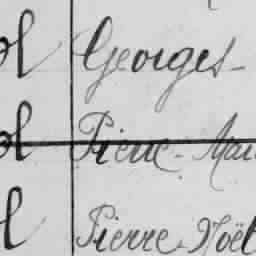 ol Georges-
ol Pierre-Mar
l Pierre-Noël